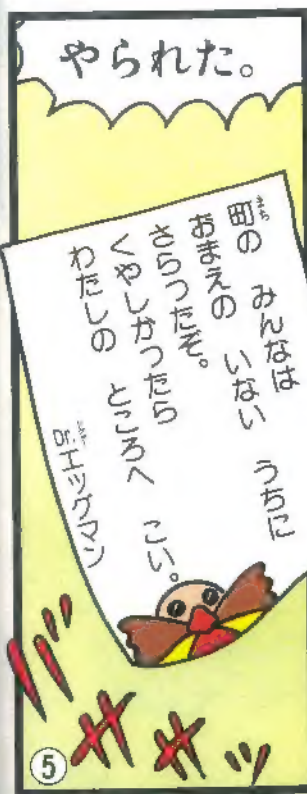 やられた。
町の みんなは
おまえの いない うちに
さらったぞ。
くやしかったら
わたしの ところへ こい。
Dr.エッグマン
ガガガ
⑤